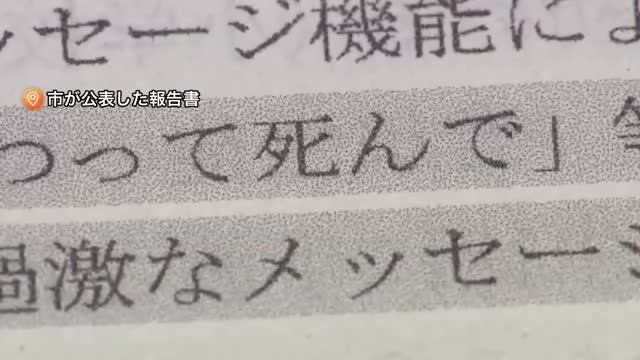 ッセージ機能によ
市が公表した報告書
つって死んで」
過激なメッセージ